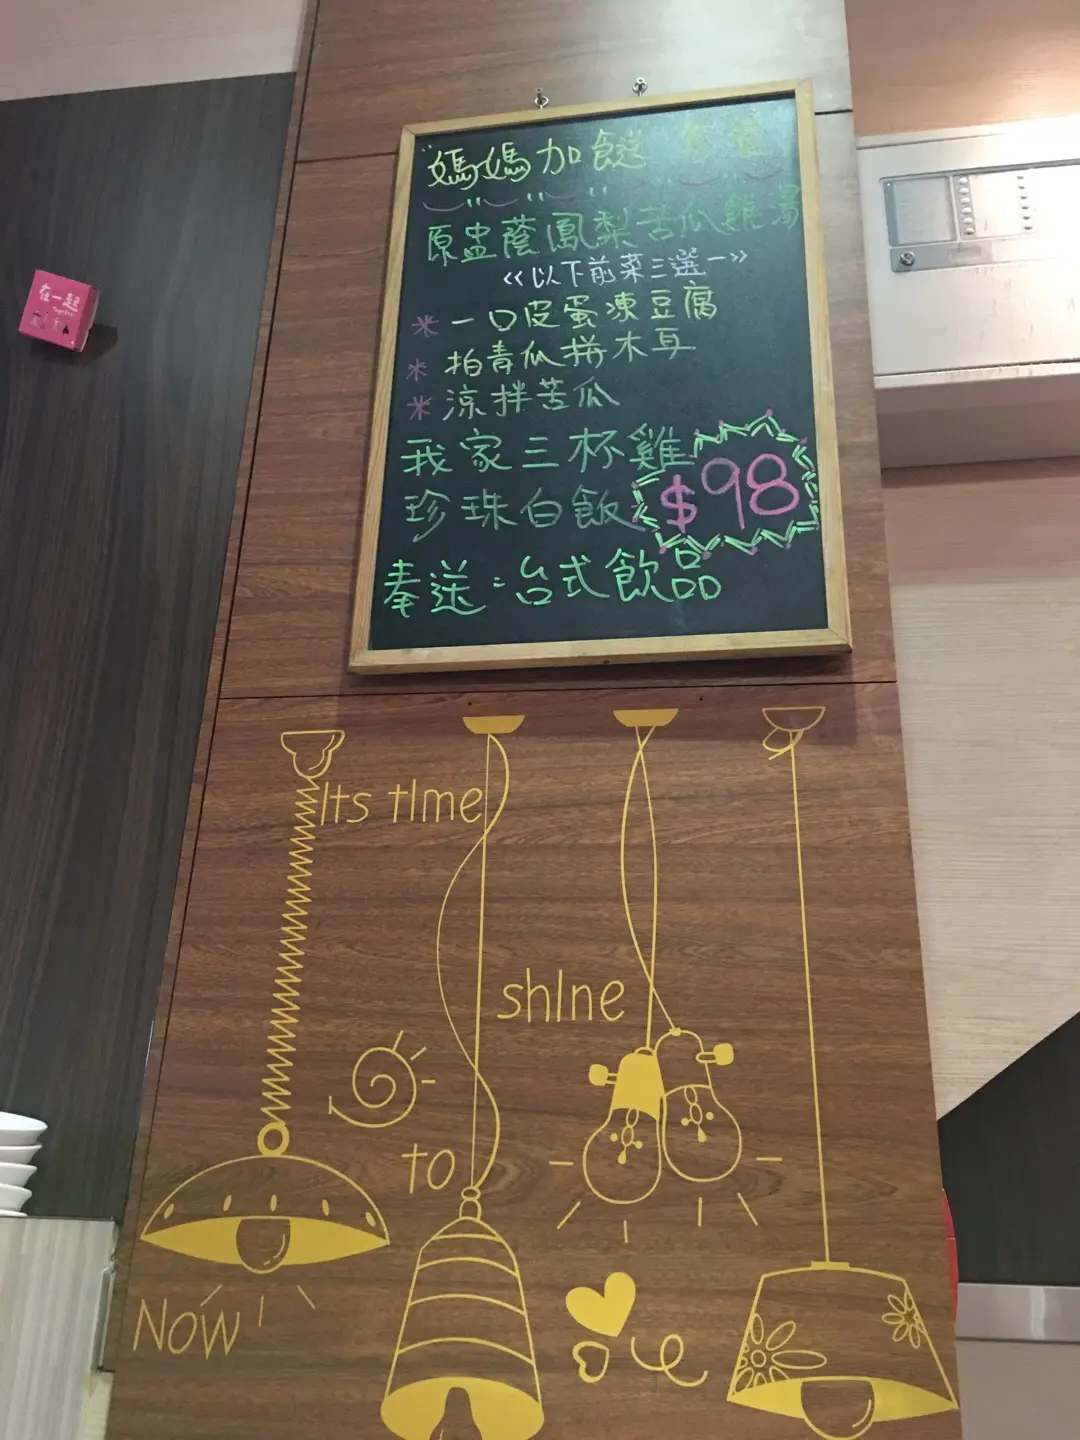 媽媽加餸
原盅蔭鳳梨苦瓜雞湯
《以下前菜三選一》
* 一口皮蛋凍豆腐
* 拍青瓜拼木耳
* 涼拌苦瓜
我家三杯雞
珍珠白飯
$98
奉送:台式飲品
在一起
Its tIme
shIne
to
Now